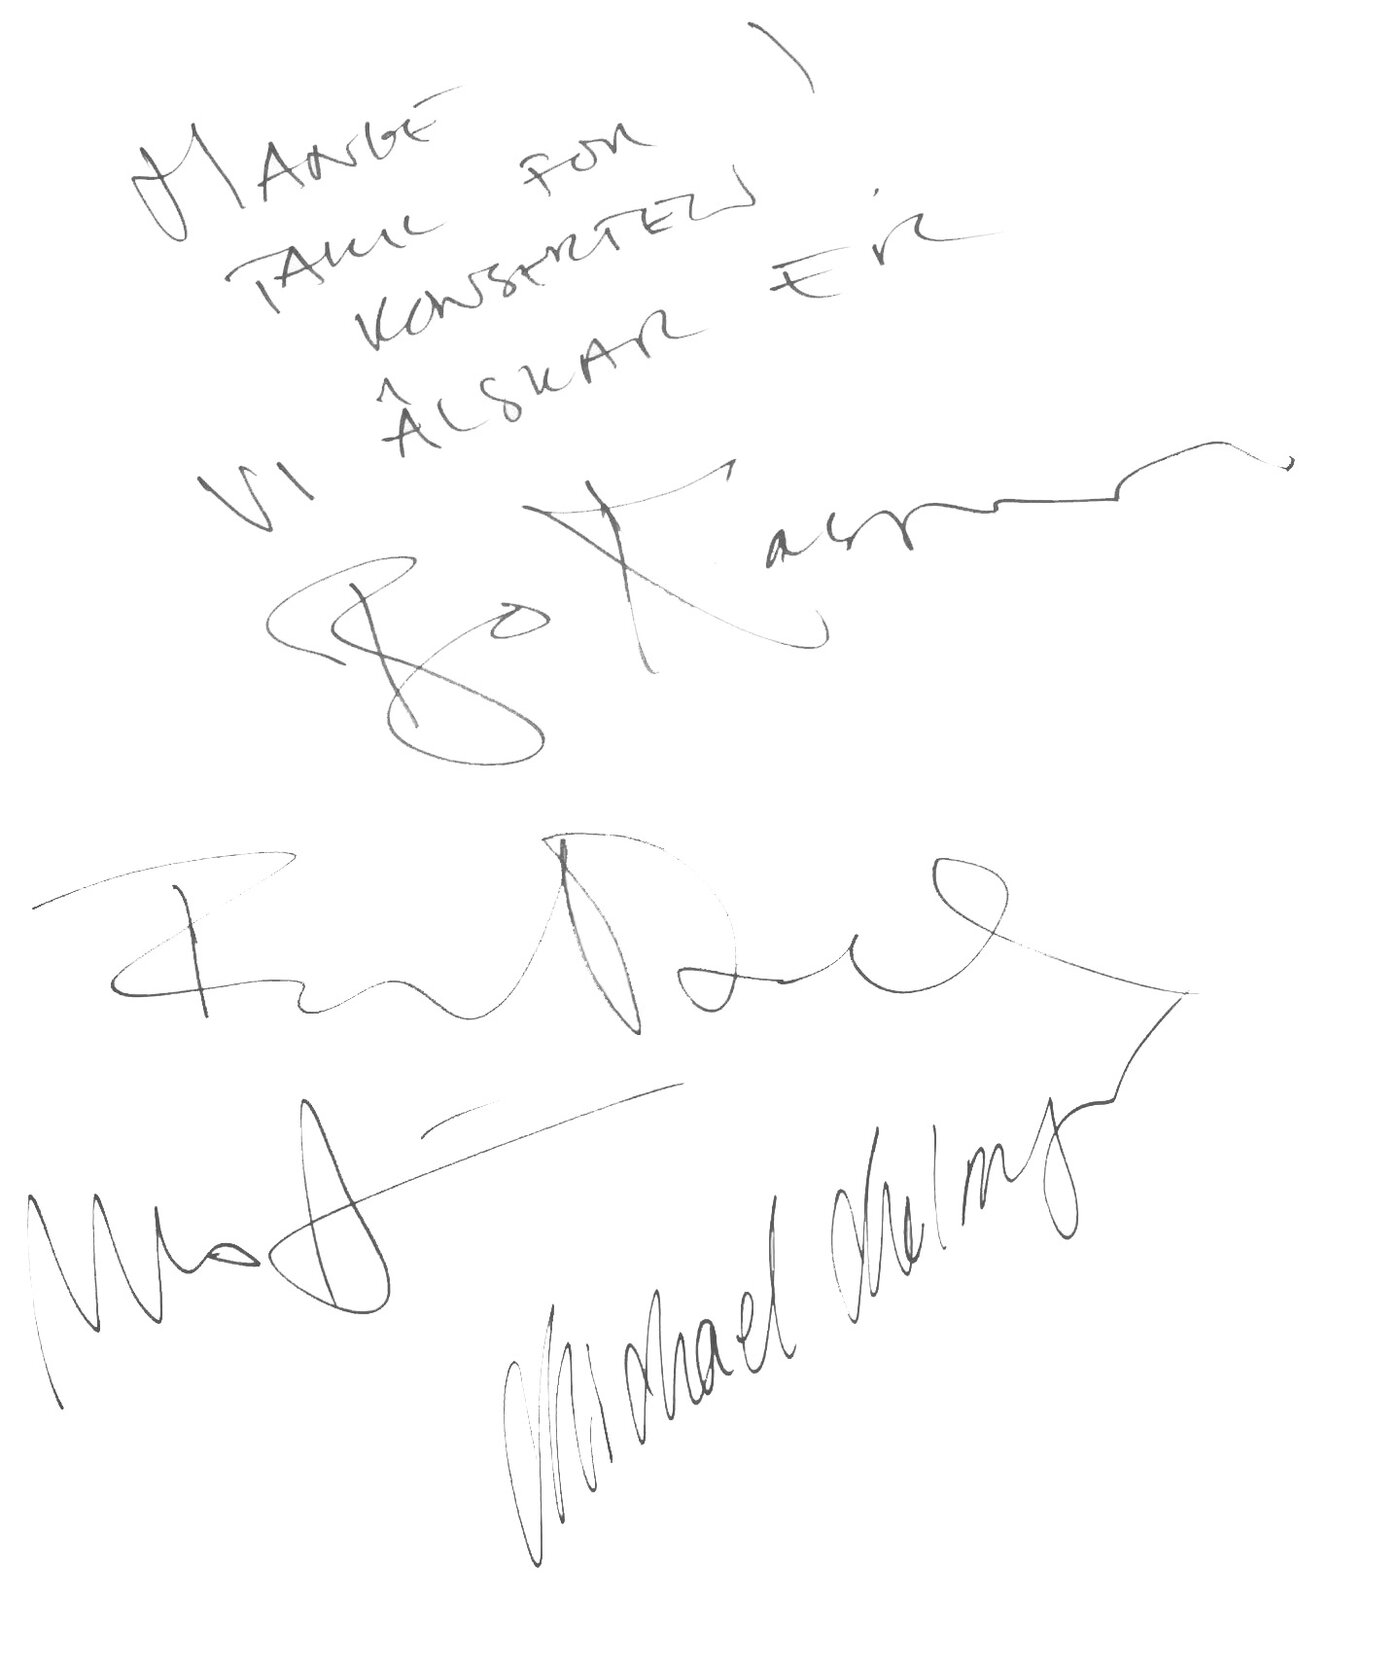 MANGE
TAKK FOR
KONSERTEN!
VI ÄLSKAR ER
Bo Kasper
Michael Malmgren